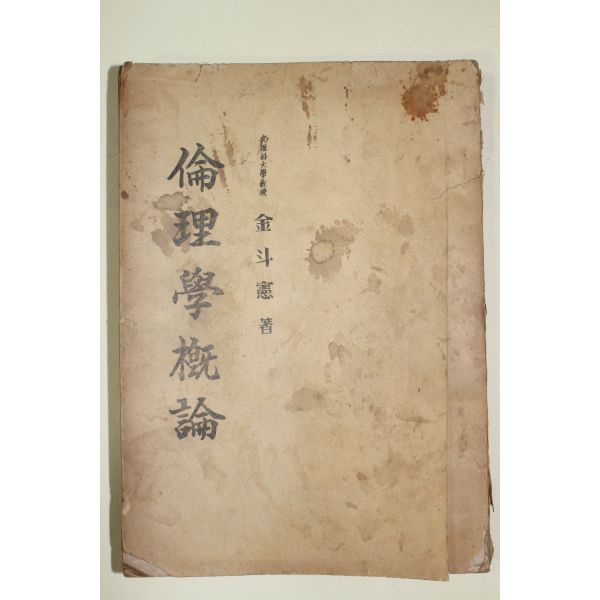 文理科大學教授 金斗憲 著
倫理學概論